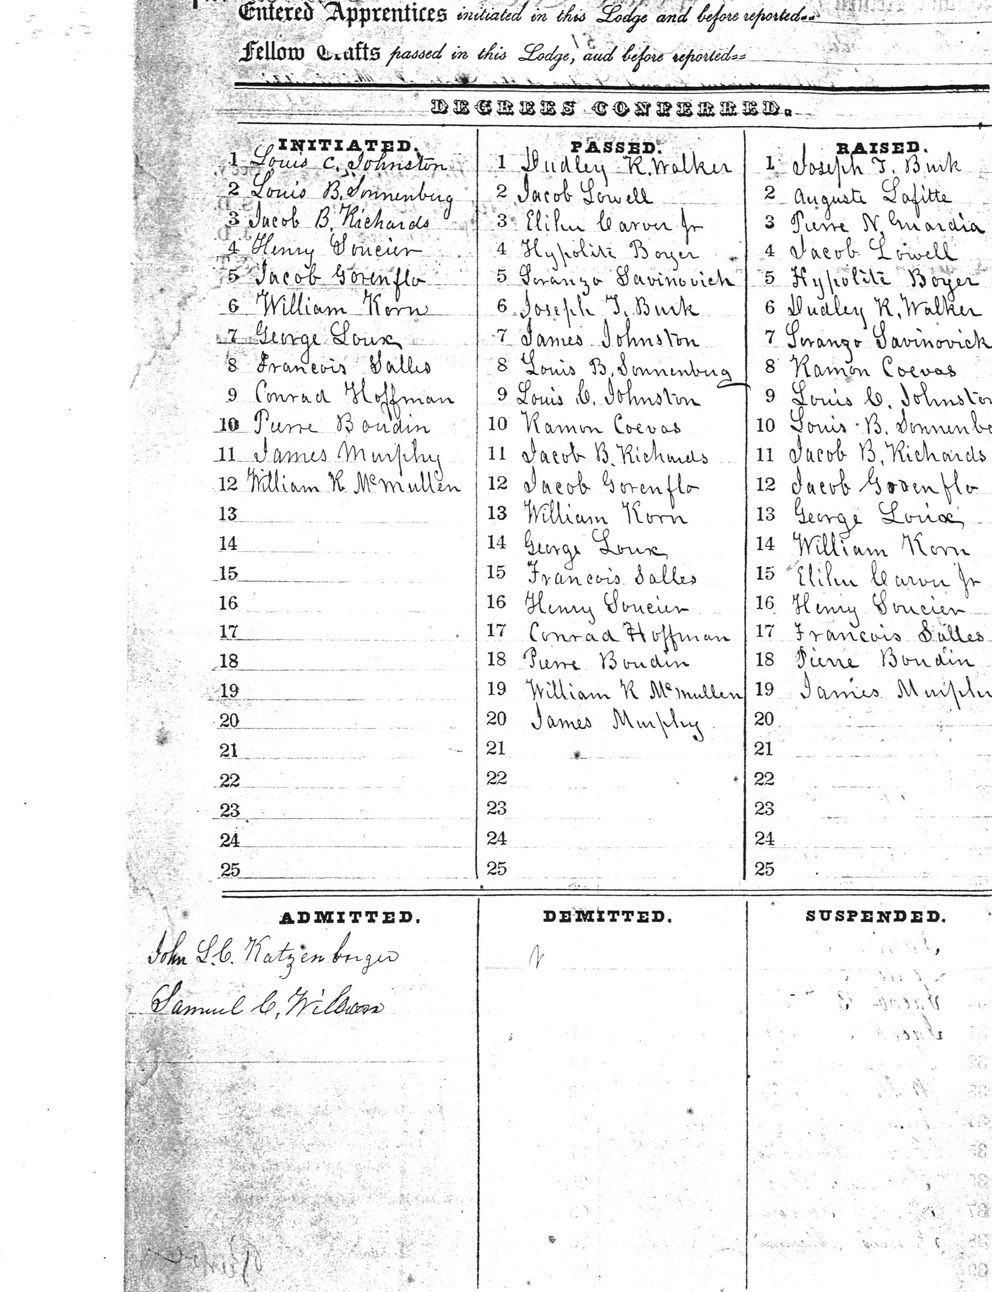 Entered Apprentices initiated in this Lodge and before reported
Fellow Crafts passed in this Lodge, and before reported
DEGREES CONFERRED.
INITIATED.
1 Louis C. Johnston
2 Louis B. Sonnenburg
3 Jacob B. Richards
4 Henry Soucier
5 Jacob Gorenflo
6 William Korn
7 George Loux
8 Francois Salles
9 Conrad Hoffman
10 Pierre Boudin
11 James Murphy
12 William K McMullen
13
14
15
16
17
18
19
20
21
22
23
24
25
PASSED.
1 Dudley K. Walker
2 Jacob Lowell
3 Elihu Carver Jr
4 Hypolite Boyer
5 Loranzo Savinovich
6 Joseph T. Burk
7 James Johnston
8 Louis B. Sonnenbug
9 Louis C. Johnston
10 Ramon Coevas
11 Jacob B. Richards
12 Jacob Gorenflo
13 William Korn
14 George Loux
15 Francois Salles
16 Henry Soucier
17 Conrad Hoffman
18 Pierre Boudin
19 William K McMullen
20 James Murphy
21
22
23
24
25
RAISED.
1 Joseph T. Burk
2 Auguste Lafitte
3 Pierre N. Guardia
4 Jacob Lowell
5 Hypolite Boyer
6 Dudley K. Walker
7 Loranzo Savinovich
8 Ramon Coevas
9 Louis C. Johnston
10 Louis B. Sonnenbe
11 Jacob B. Richards
12 Jacob Gorenflo
13 George Loux
14 William Korn
15 Elihu Carver Jr
16 Henry Soucier
17 Francois Salles
18 Pierre Boudin
19 James Murphy
20
21
22
23
24
25
ADMITTED.
John L.C. Katzenberger
Samuel C. Wilson
DEMITTED.
SUSPENDED.